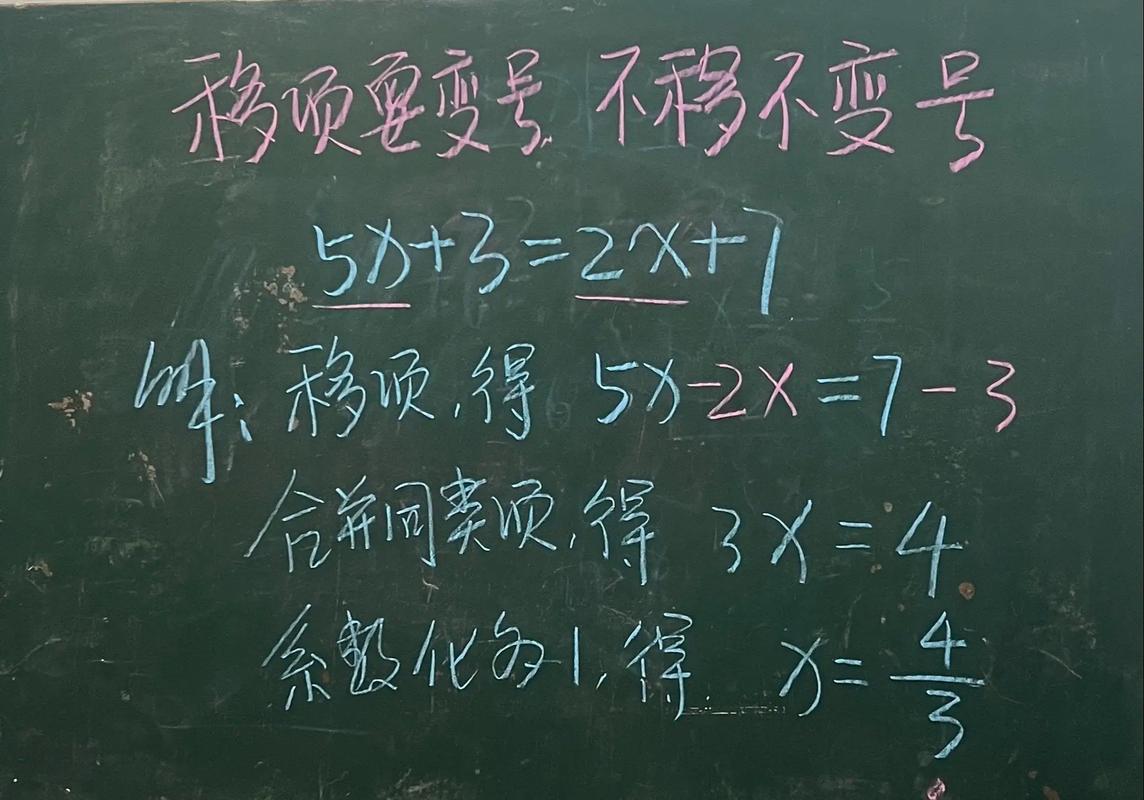 移项要变号 不移不变号
5x+3=2x+7
解：移项，得 5x-2x=7-3
合并同类项，得 3x=4
系数化为1，得 x=4/3